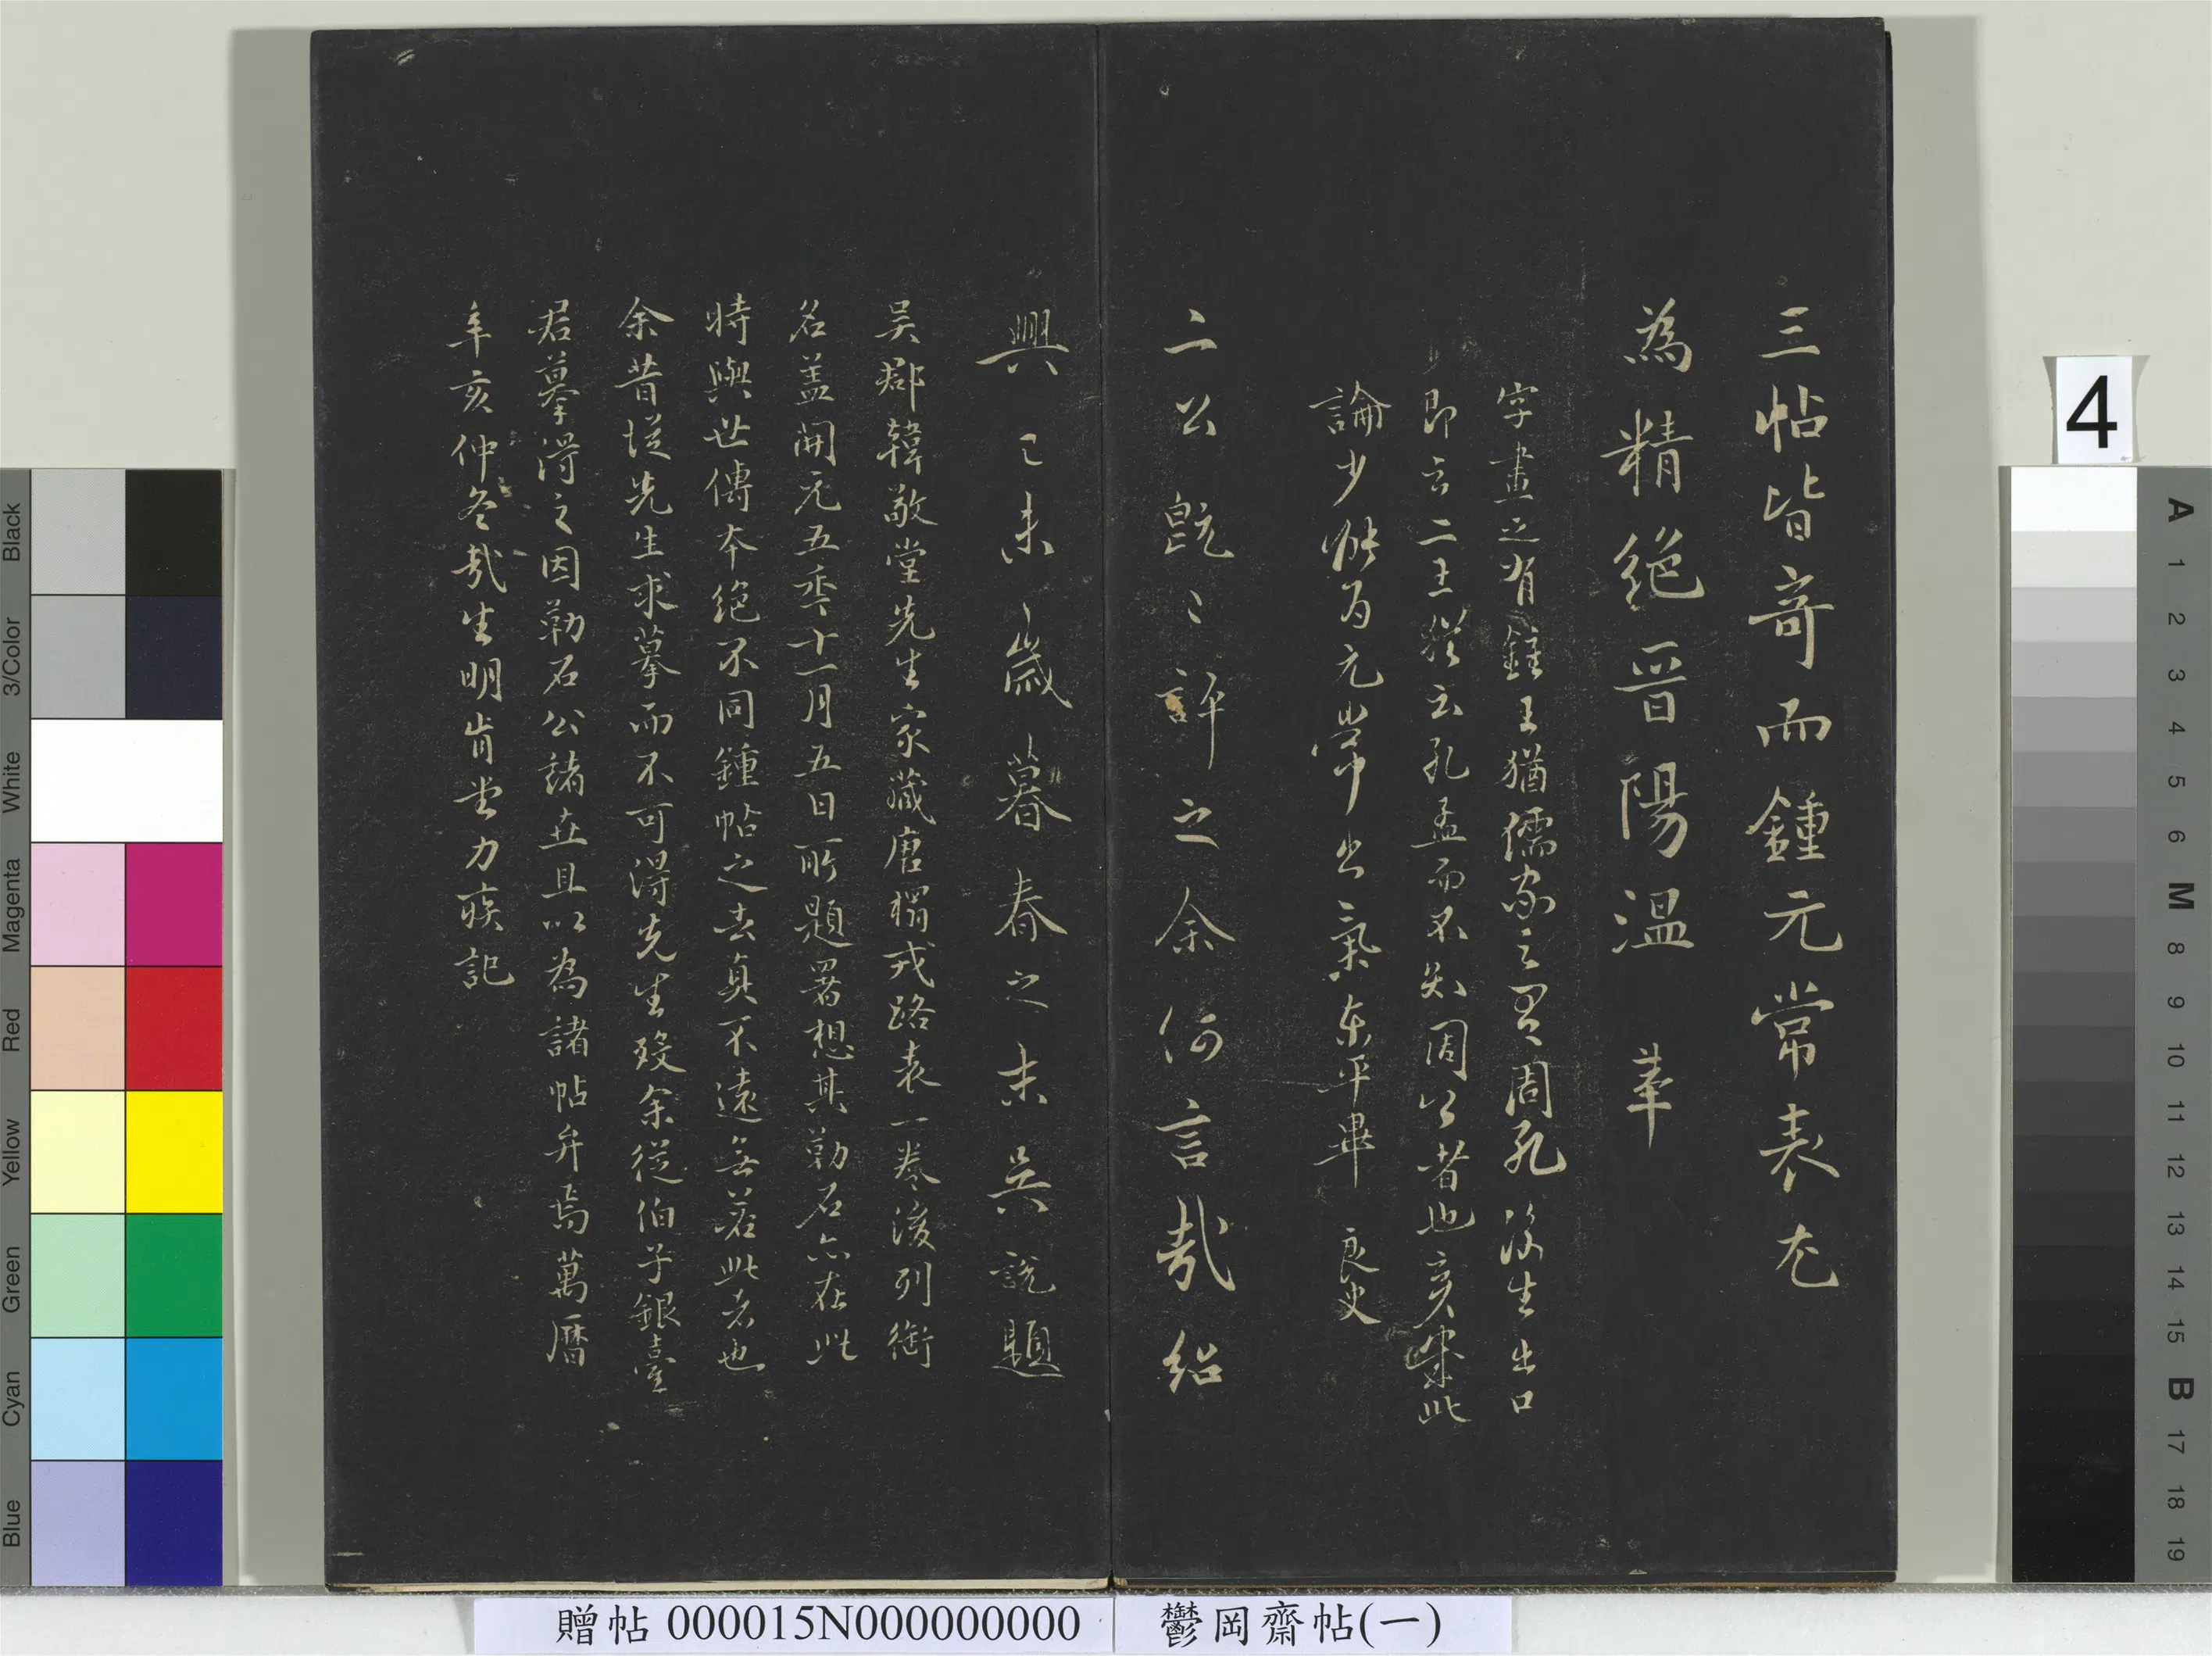 三帖皆奇而鍾元常表尤
為精絕晉陽溫 革
字畫之有鍾王猶儒家之有周孔後生出口
即云二王猶云孔孟而不知周公者也亥 此
論少伸為元常出氣東平畢 良史
二公既已評之余何言哉紹
興己未歲暮春之末吳說題
吳郡韓敬堂先生家藏唐搨戎路表一卷後列銜
名蓋開元五季十一月五日所題署想其勒石亦在此
時與世傳本絕不同鍾帖之去真不遠無若此者也
余昔從先生求摹而不可得先生歿余從伯子銀臺
君摹得之因勒石公諸世且以為諸帖弁焉萬曆
辛亥仲冬哉生明肯堂力疾記
贈帖 000015N000000000
鬱岡齋帖(一)
4
Black
3/Color
White
Magenta
Red
Yellow
Green
Cyan
Blue
A 1 2 3 4 5 6 M 8 9 10 11 12 13 14 15 B 17 18 19